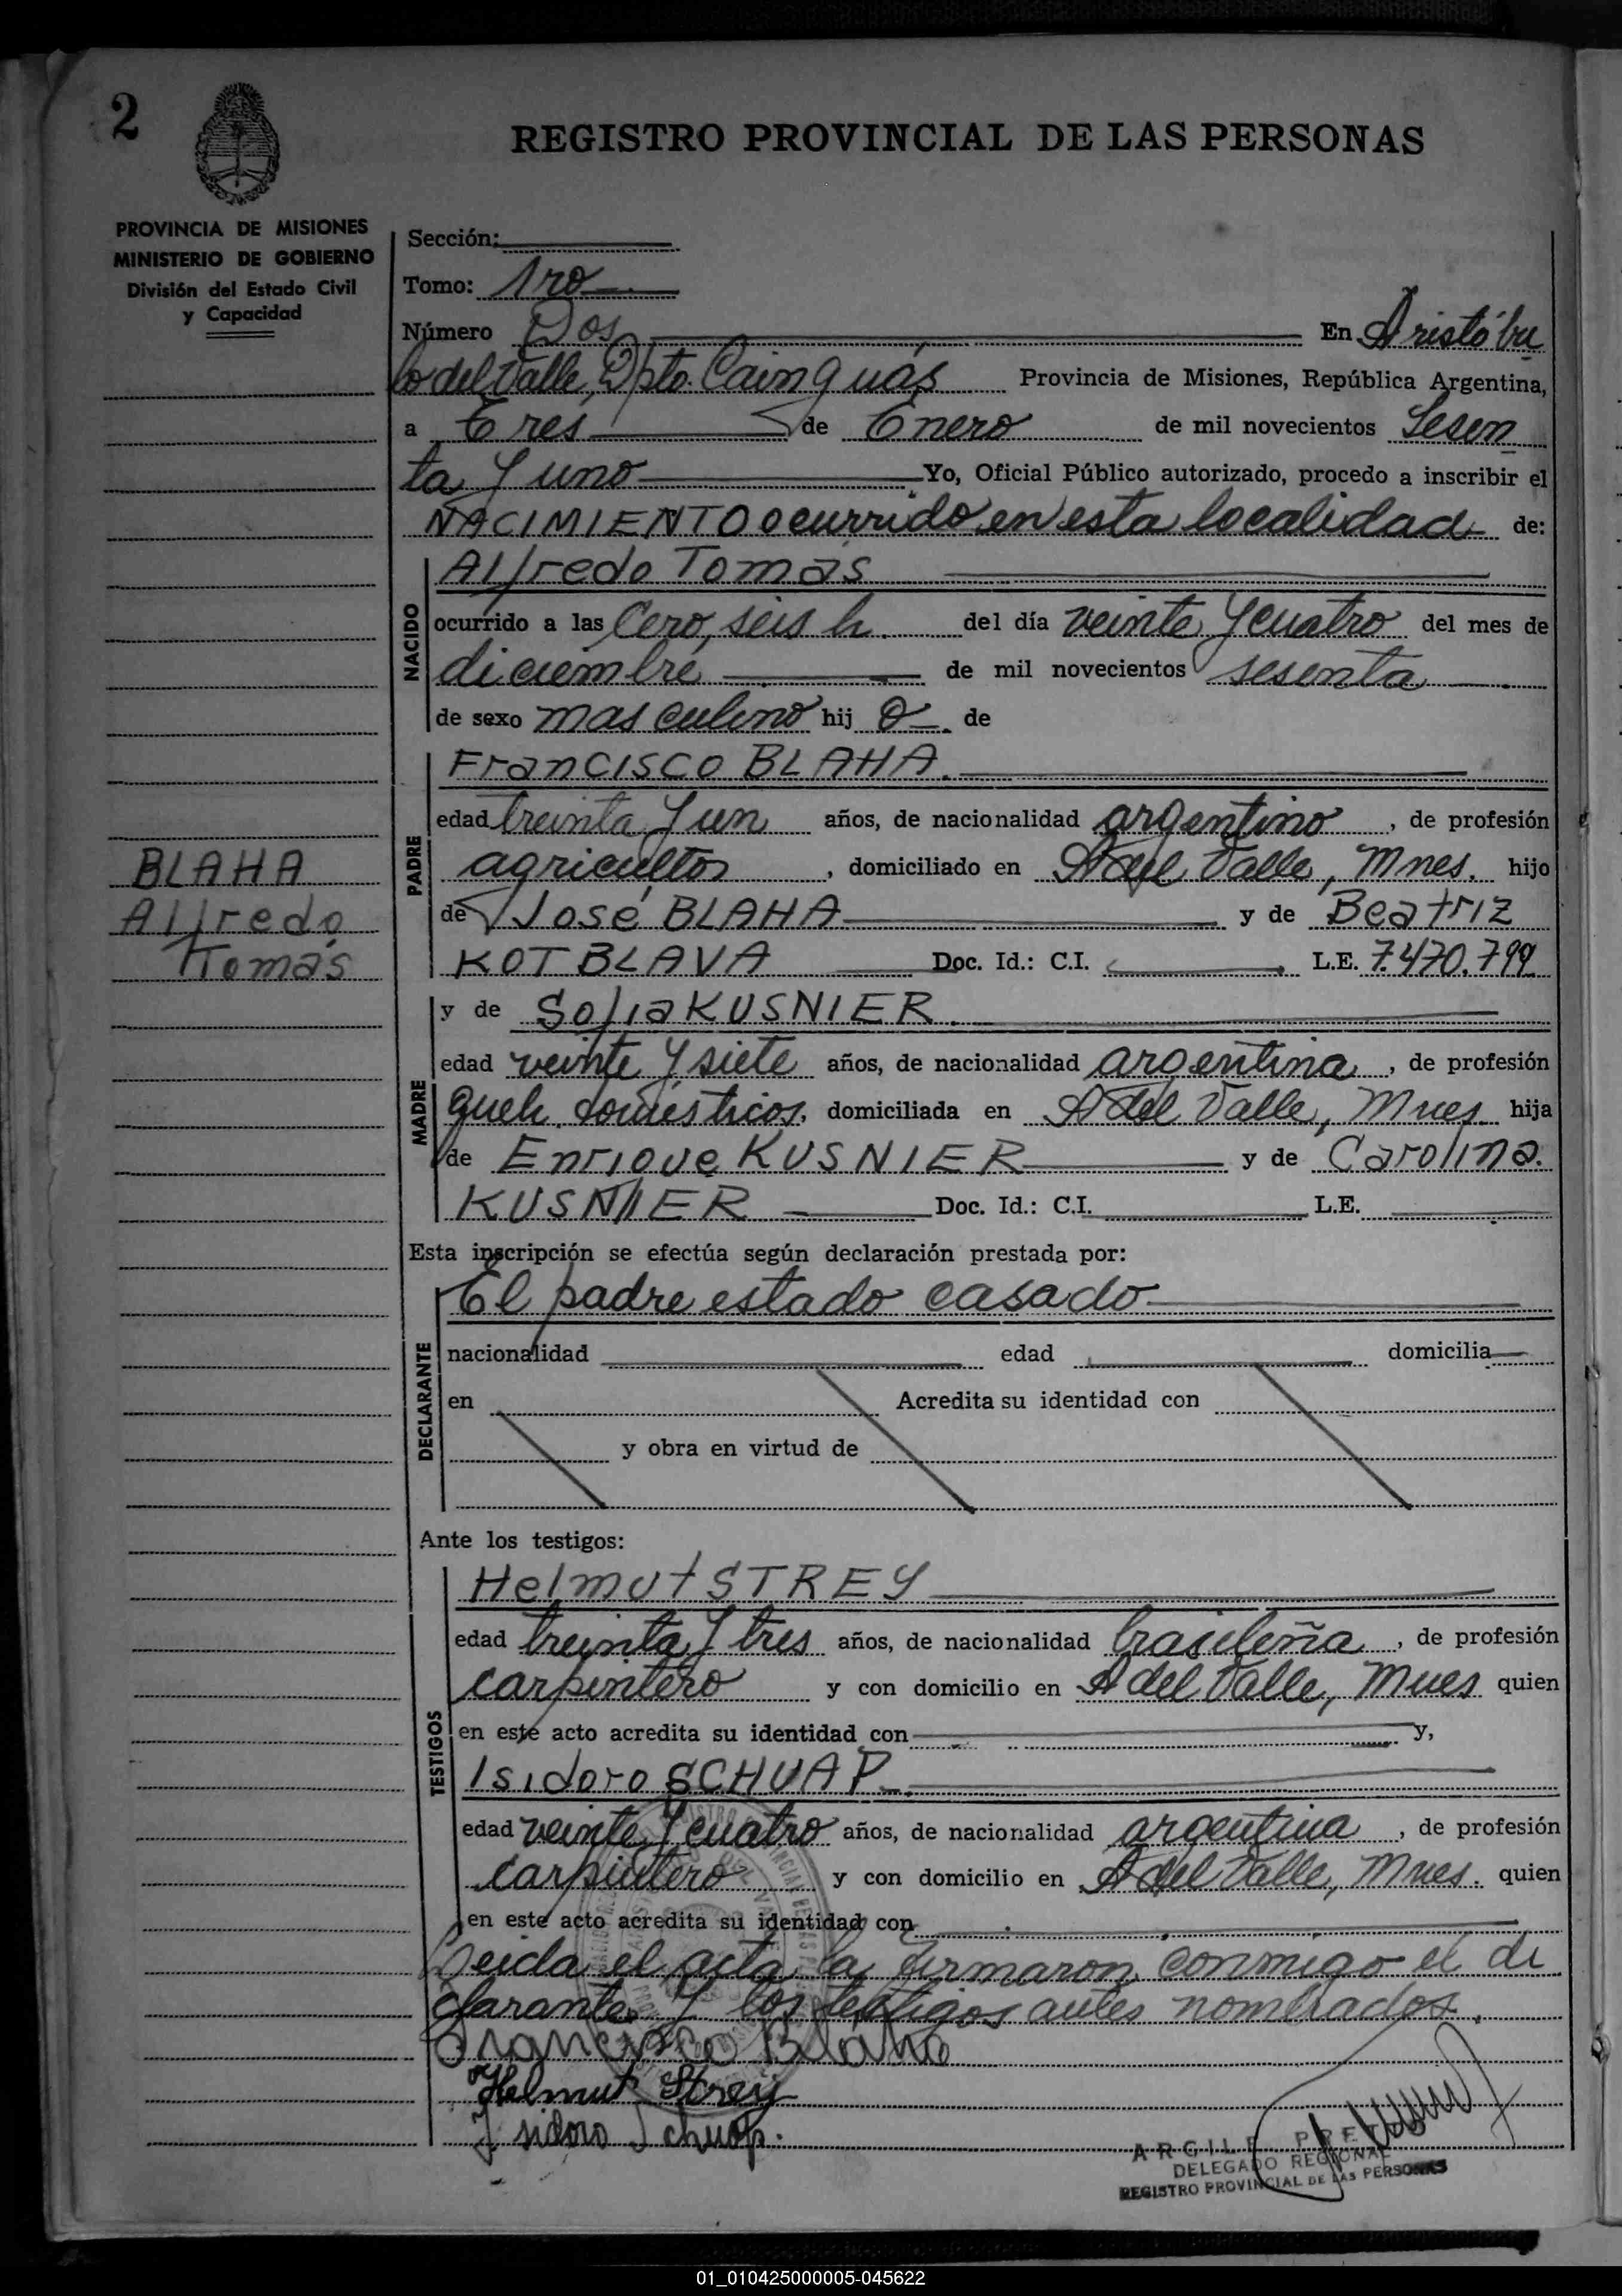 2
REGISTRO PROVINCIAL DE LAS PERSONAS
PROVINCIA DE MISIONES
MINISTERIO DE GOBIERNO
División del Estado Civil
y Capacidad
Sección:
Tomo: 1ro
Número Dos En Aristóbu
lo del Valle, Dpto. Cainguás Provincia de Misiones, República Argentina,
a Tres de Enero de mil novecientos Sesen
ta y uno Yo, Oficial Público autorizado, procedo a inscribir el
NACIMIENTO ocurrido en esta localidad de:
NACIDO
Alfredo Tomás
ocurrido a las Cero, seis h. del día veinte y cuatro del mes de
diciembre de mil novecientos sesenta
de sexo masculino hij o de
PADRE
Francisco BLAHA.
edad treinta y un años, de nacionalidad argentino, de profesión
agricultor, domiciliado en A del Valle, Mnes. hijo
de José BLAHA y de Beatriz
KOTBLAVA Doc. Id.: C.I. L.E. 7.470.799
BLAHA
Alfredo
Tomás
MADRE
y de Sofia KUSNIER.
edad veinte y siete años, de nacionalidad argentina, de profesión
queh. domésticos, domiciliada en A del Valle, Mnes. hija
de Enrique KUSNIER y de Carolina.
KUSNIER Doc. Id.: C.I. L.E.
Esta inscripción se efectúa según declaración prestada por:
DECLARANTE
El padre estado casado
nacionalidad edad domicilia
en Acredita su identidad con
y obra en virtud de
Ante los testigos:
TESTIGOS
Helmut STREY
edad treinta y tres años, de nacionalidad brasileña, de profesión
carpintero y con domicilio en A del Valle, Mnes quien
en este acto acredita su identidad con y,
Isidoro SCHUAP.
edad veinte y cuatro años, de nacionalidad argentina, de profesión
carpintero y con domicilio en A del Valle, Mnes. quien
en este acto acredita su identidad con
Leida el acta la firmaron conmigo el de
clarante y los testigos antes nombrados.
Francisco Blaha
Helmut Strey
Isidoro Schuap.
DELEGADO REGIONAL
REGISTRO PROVINCIAL DE LAS PERSONAS
01_010425000005-045622